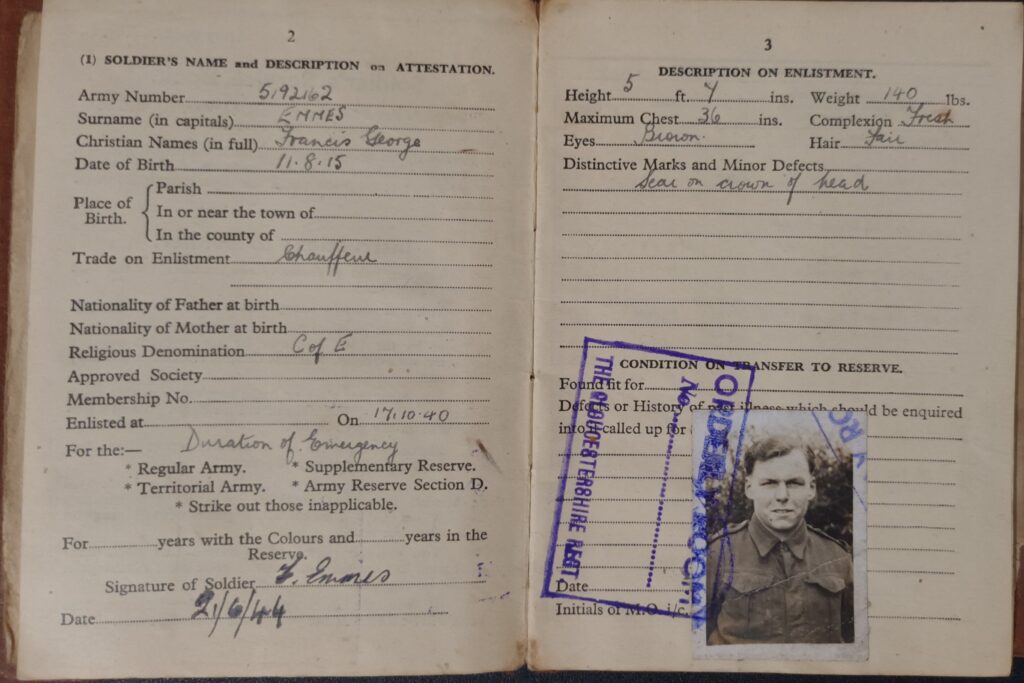 2
(1) SOLDIER'S NAME and DESCRIPTION on ATTESTATION.
Army Number 5192162
Surname (in capitals) EMMES
Christian Names (in full) Francis George
Date of Birth 11.8.15
Place of Birth.
Parish
In or near the town of
In the county of
Trade on Enlistment Chauffeur
Nationality of Father at birth
Nationality of Mother at birth
Religious Denomination C of E
Approved Society
Membership No.
Enlisted at On 17.10.40
For the:— Duration of Emergency
* Regular Army. * Supplementary Reserve.
* Territorial Army. * Army Reserve Section D.
* Strike out those inapplicable.
For years with the Colours and years in the
Reserve.
Signature of Soldier F. Emmes
Date 21/6/44
3
DESCRIPTION ON ENLISTMENT.
Height 5 ft. 7 ins. Weight 140 lbs.
Maximum Chest 36 ins. Complexion Fresh
Eyes Brown. Hair Fair
Distinctive Marks and Minor Defects
Scar on crown of head
CONDITION ON TRANSFER TO RESERVE.
Found fit for
Defects or History of past illness which should be enquired
into if called up for
Date
Initials of M.O. i/c.
ORDERLY ROOM
No.
THE GLOUCESTERSHIRE REGT.